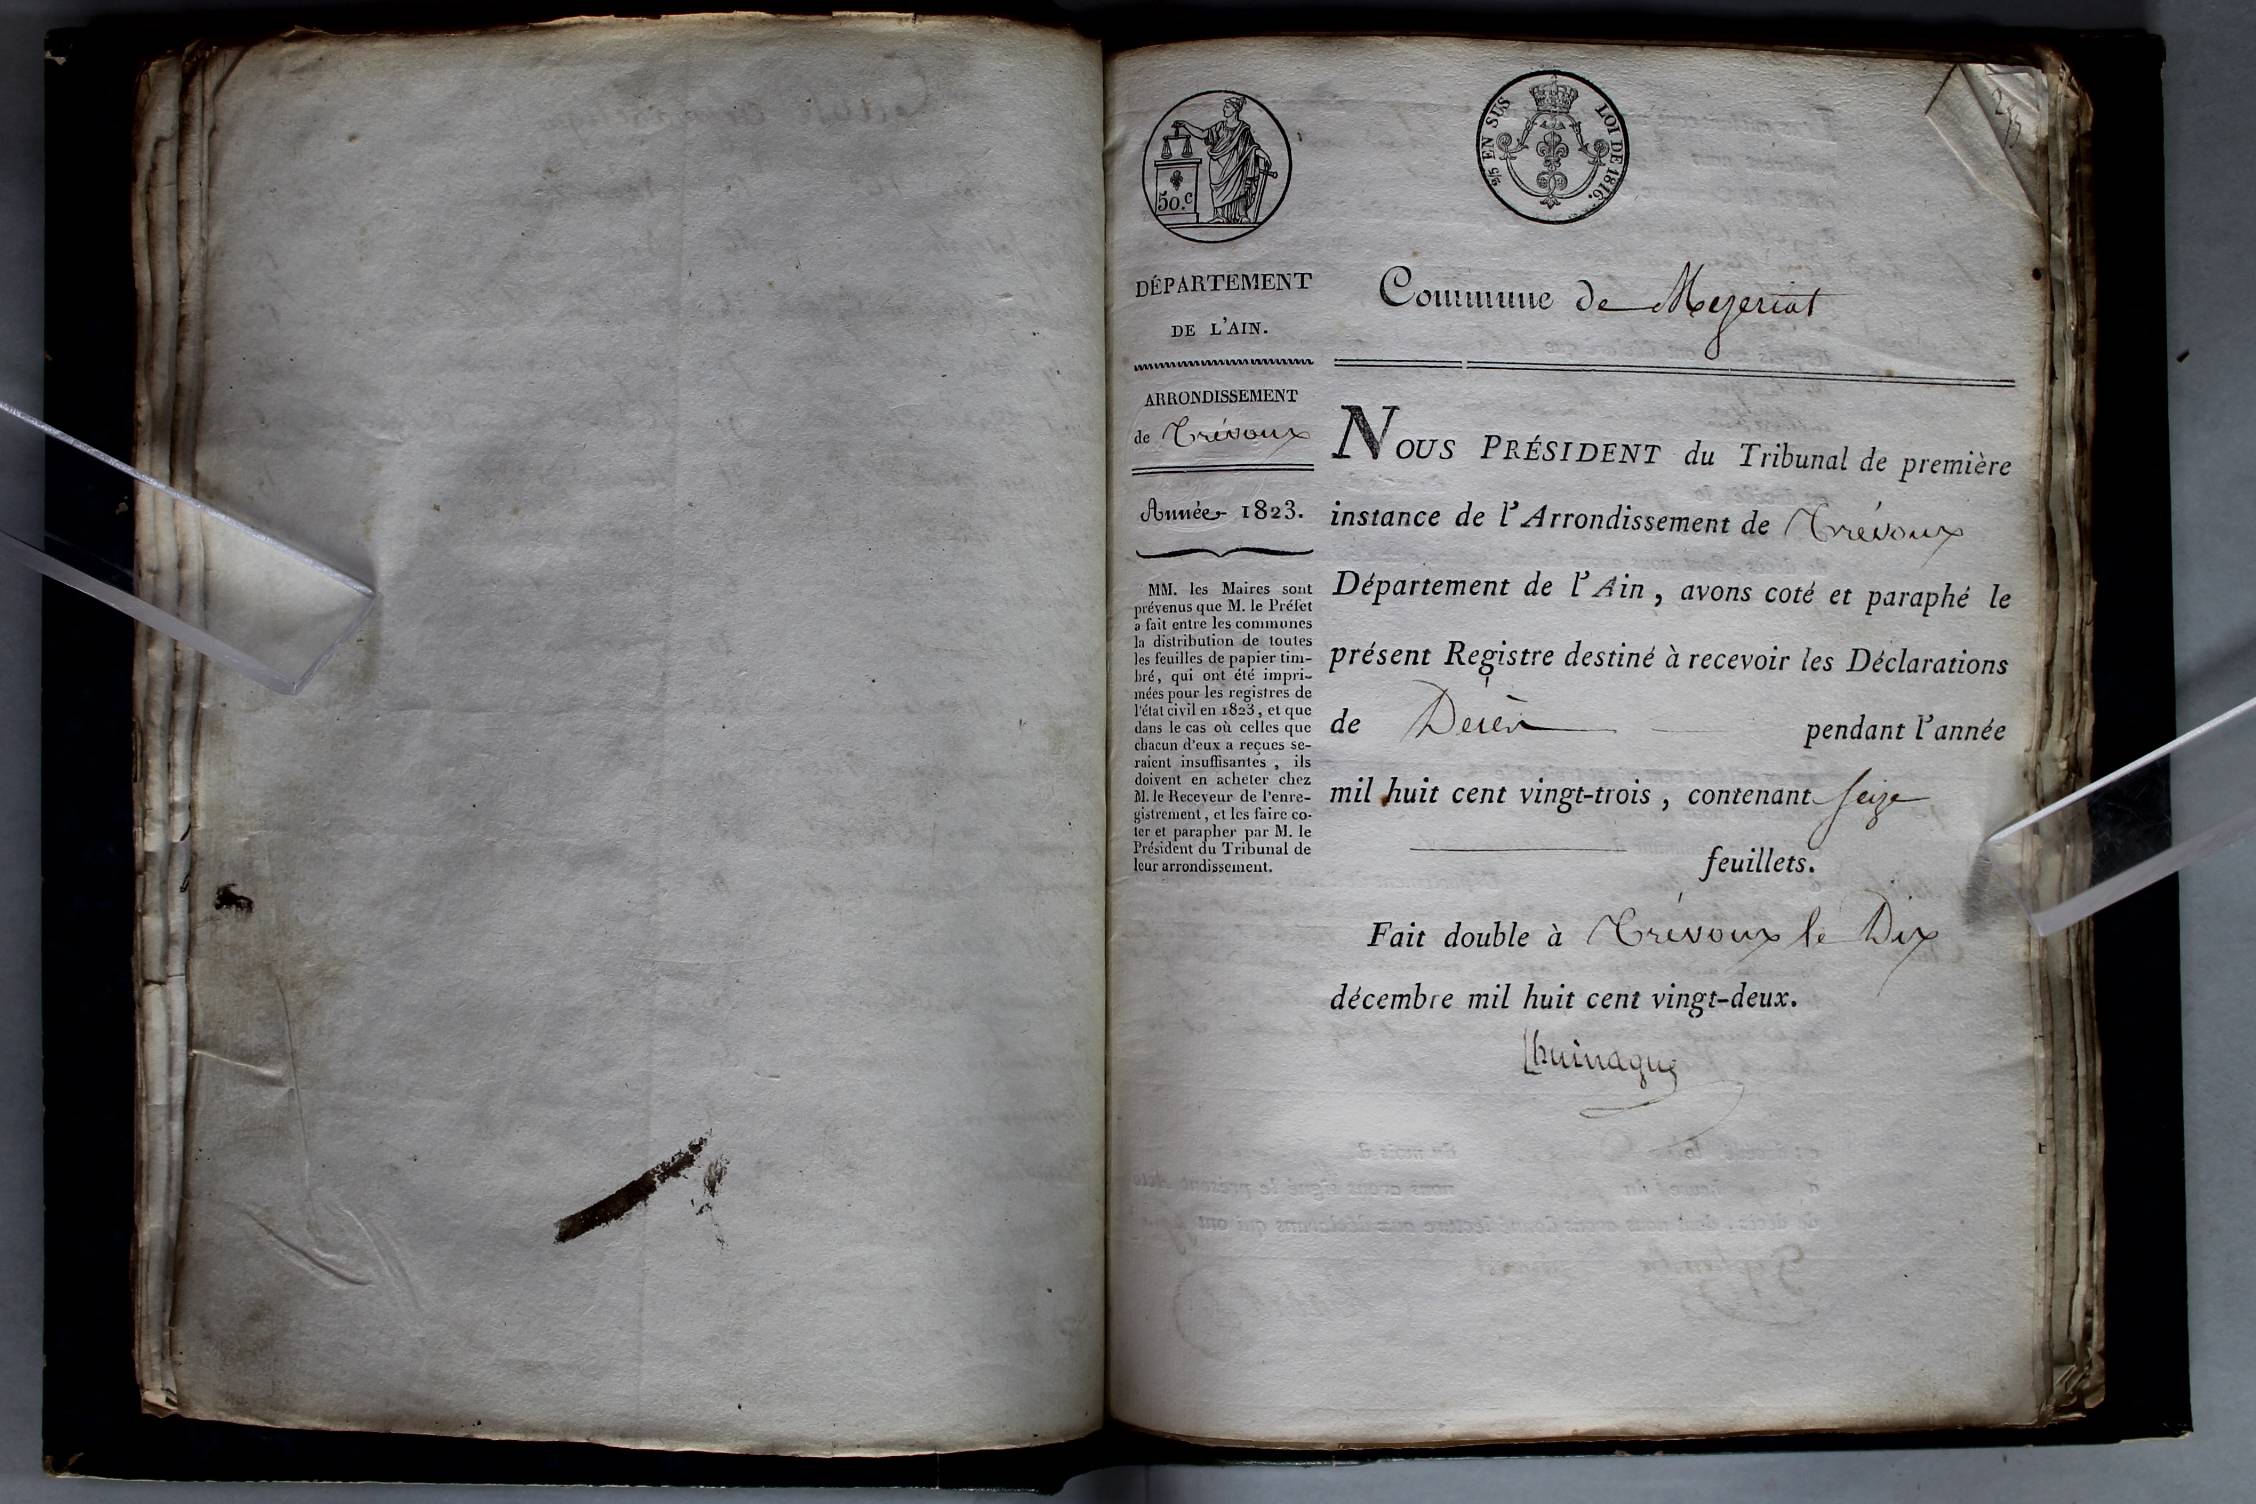 50.c
2/5 EN SUS LOI DE 1816.
DÉPARTEMENT
DE L'AIN.
ARRONDISSEMENT
de Trévoux
Année 1823.
MM. les Maires sont
prévenus que M. le Préfet
a fait entre les communes
la distribution de toutes
les feuilles de papier tim-
bré, qui ont été impri-
mées pour les registres de
l'état civil en 1823, et que
dans le cas où celles que
chacun d'eux a reçues se-
raient insuffisantes, ils
doivent en acheter chez
M. le Receveur de l'enre-
gistrement, et les faire co-
ter et parapher par M. le
Président du Tribunal de
leur arrondissement.
Commune de Mezeriat
NOUS PRÉSIDENT du Tribunal de première
instance de l'Arrondissement de Trévoux
Département de l'Ain, avons coté et paraphé le
présent Registre destiné à recevoir les Déclarations
de Décès pendant l'année
mil huit cent vingt-trois, contenant Seize
feuillets.
Fait double à Trévoux le Dix
décembre mil huit cent vingt-deux.